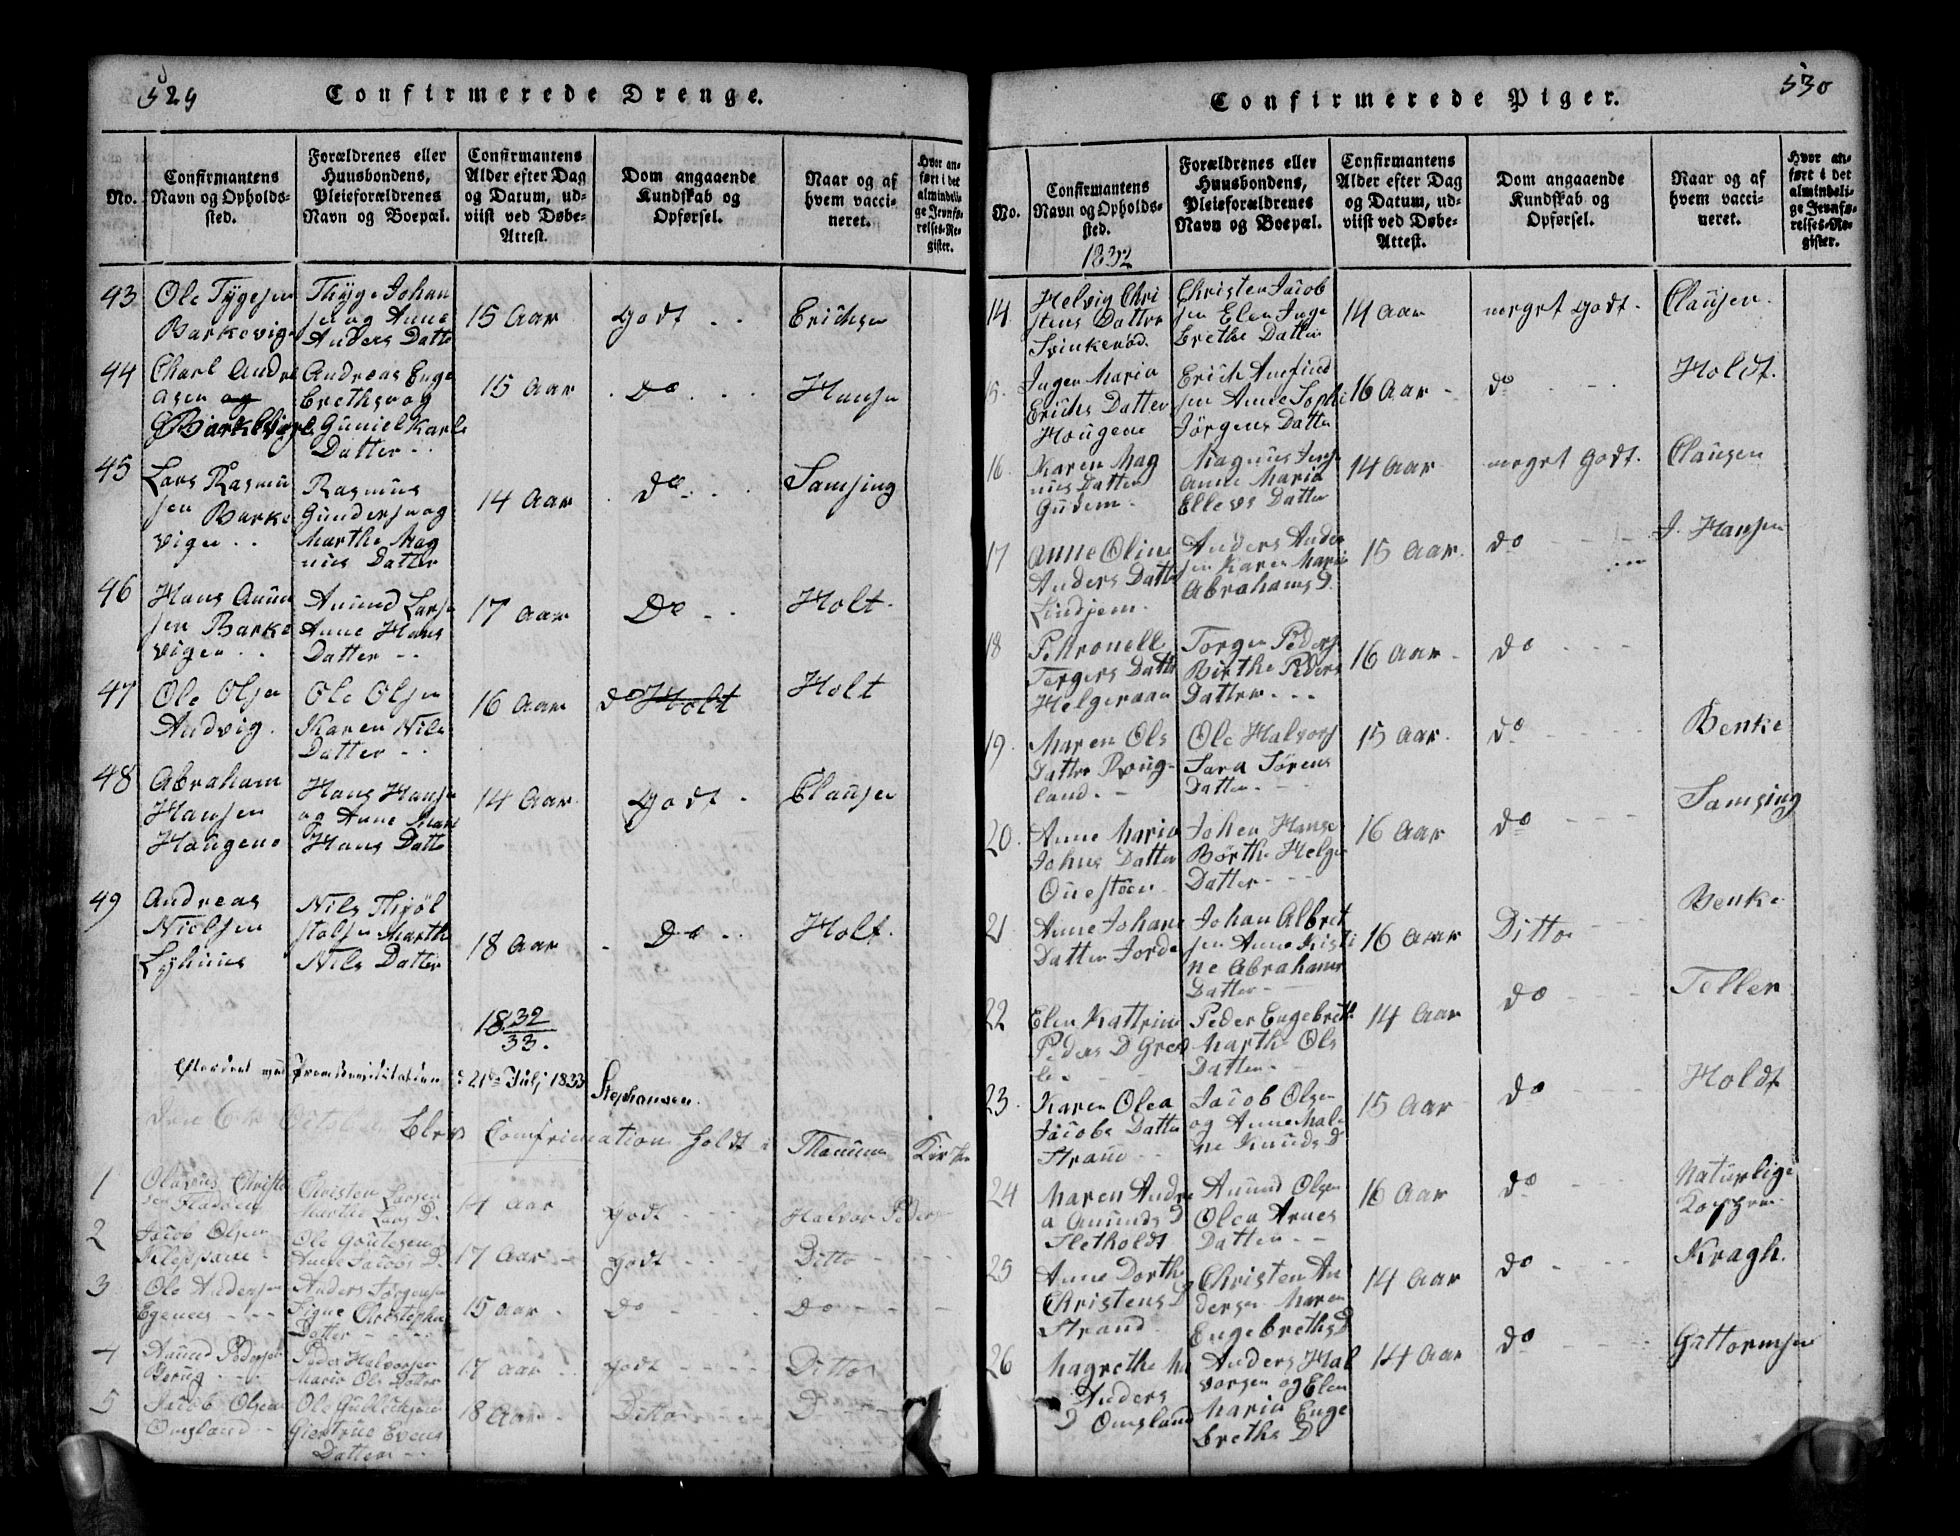 529
Confirmerede Drenge.
No.
Confirmantens
Navn og Opholds-
sted.
Forældrenes eller
Huusbondens,
Pleieforældrenes
Navn og Boepæl.
Confirmantens
Alder efter Dag
og Datum, ud-
viist ved Døbe-
Attest.
Dom angaaende
Kundskab og
Opførsel.
Naar og af
hvem vacci-
neret.
Hvor an-
ført i det
almindeli-
ge Jevnfø-
relses-Re-
gister.
43
Ole Tygesen
Barkevigen
Thyge Johan
sen og Anne
Anders Datte
15 Aar
Godt . .
Erichsen
44
Charl Andre
asen og
Barkevigen
Andreas Enge
brethsen og
Guniel Karls
Datter . .
15 Aar
Do . . .
Hansen
45
Lars Rasmu
sen Barke
vigen . .
Rasmus
Gundersen og
Marthe Mag
nus Datter
14 Aar
Do . . .
Samsing
46
Hans Anun
sen Barke
vigen . .
Anund Larsen
Anne Hans
Datter - -
17 Aar
Do - .
Holt.
47
Ole Olsen
Andvig.
Ole Olsen
Karen Nils
Datter - .
16 Aar
do Holt
Holt
48
Abraham
Hansen
Haugene
Hans Hansen
og Anne Mari
Hans Datte
14 Aar
Godt .
Clausen
49
Andreas
Nielsen
Lyhuus
Nils Thrøl
stolsen Marthe
Nils Datter
18 Aar
Do - .
Holt.
1832
33.
Efterseet ved Provstevisitation d: 21de Julj 1833 Stephansen.
Den 6te October Blev Comfrimation holdt i Tha Kirken
1
Olaus Christen
sen Fladden
Christen Larsen
Marthe Lars D.
14 Aar
Godt - - -
Halvor Peders
2
Jacob Olsen
Kleppane -
Ole Goutesen
Anne Jacobs D.
17 Aar -
Godt - - - -
Ditto - -
3
Ole Andersen
Egenes - - -
Anders Jørgensen
Signe Christophe
Datter - - - -
15 Aar -
Do - -
Do - - -
4
Anund Pedersen
Berug - - -
Peder Halvorsen
Marie Ols Datter
17 Aar - -
Godt - - - -
Ditto
5
Jacob Olsen
Omsland - -
Ole Gullichsen
Giertrue Evens
Datter - -
18 Aar - -
Ditto
D
530
Confirmerede Piger.
No.
Confirmantens
Navn og Opholds-
sted.
1832
Forældrenes eller
Huusbondens,
Pleieforældrenes
Navn og Boepæl.
Confirmantens
Alder efter Dag
og Datum, ud-
viist ved Døbe-
Attest.
Dom angaaende
Kundskab og
Opførsel.
Naar og af
hvem vacci-
neret.
Hvor an-
ført i det
almindeli-
ge Jevnfø-
relses-Re-
gister.
14
Helvig Chri
stens Datter
Svinkerød.
Christen Jacob
sen Elen Inge
brethe Datter
14 Aar
meget Godt.
Clausen.
15.
Inger Maria
Erichs Datter
Hougene
Erich Amfind
sen Anne Sophi
Jørgens Datter
16 Aar -
do - - -
Holdt.
16.
Karen Mag
nus Datter
Gudem.
Magnus Jens
Anne Maria
Ellevs Datter
14 Aar
meget Godt.
Clausen
17
Anne Oline
Anders Datter
Lindjem.
Anders Ander
sen Karen Marie
Abrahams D.
15 Aar.
do - - -
J. Hansen
18
Petronelle
Tergers Datte
Helgeraaen
Torger Peders
Birthe Peders
Datter. . .
16 Aar -
do - - -
19.
Maren Ols
Datter Roug-
land. -
Ole Halvors
Sara Sørens
Datter. - -
15 Aar.
do - - -
Benke
20.
Anne Maria
Johns Datter
Ouestøen
Johen Hanse
Børthe Helge
Datter - - -
16 Aar
do - - -
Samsing
21
Anne Johane
Datter Jorde
Johan Albret
sen Anne Kristi
ne Abrahams
Datter - -
16 Aar
Ditto - -
Benke
22
Elen Kattrine
Peders D Grev
le.
Peder Engebreth
Marthe Ols
Datter. -
14 Aar
do - - -
Teller
23.
Karen Olea
Jacobs Datte
Straue - -
Jacob Olsen
og Anne Male
ne Knuds D
15 Aar
do - - -
Holdt
24
Maren Andre
a Anunds D
Sletholdt
Anund Olsen
Olea Arnes
Datter - -
16 Aar
do - - -
Naturlige
Kopper
25
Anne Dorthe
Christens D
Strand.
Christen An
dersen Maren
Engebreths D
14 Aar
do - - -
Kragh.
26
Magrethe Ma
Anders
D Omsland
Anders Hal
vorsen og Elen
Maria Enge
breths D.
14 Aar
do - - -
Guttormsen